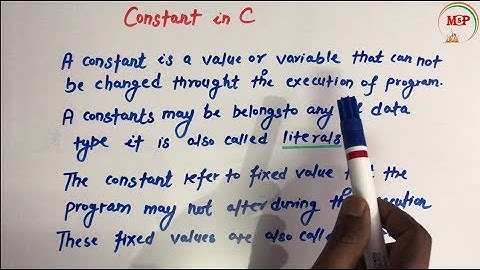 MSP
Constant in C
A constant is a value or variable that can not
be changed throught the execution of program.
A constants may be belongsto any data
type it is also called literals
The constant refer to fixed value the
program may not after during
These fixed values are also called